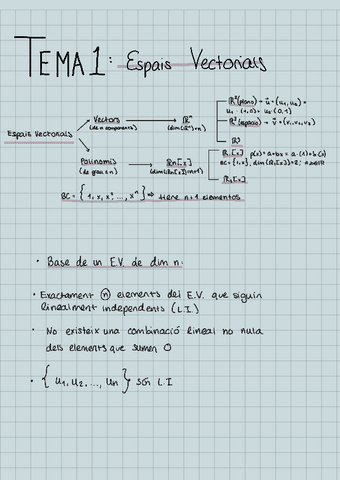 TEMA 1: Espais Vectorials
Espais Vectorials
Vectors
(de n components)
ℝⁿ
(dim(ℝⁿ)=n)
ℝ²(plano) → ū = (u₁, u₂) =
u₁ · (1,0) + u₂ · (0,1)
ℝ³(espacio) → v̄ = (v₁, v₂, v₃)
Polinomis
(de grau ≤ n)
ℝn[x]
(dim(ℝn[x])=n+1)
p(x) = a+bx = a·(1)+b·(x)
BC = {1, x, x², ..., xⁿ} ⇒ tiene n+1 elementos
· Base de un E.V. de dim n:
· Exactament n elements del E.V. que siguin
linealment independents (L.I.)
· No existeix una combinació lineal no nula
dels elements que sumen 0
· {u₁, u₂, ..., un} són L.I